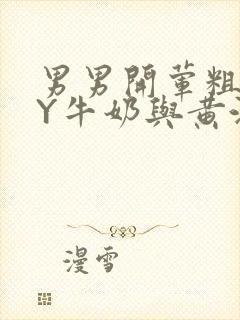 男男開葷粗
Y牛奶與黄
漫雪